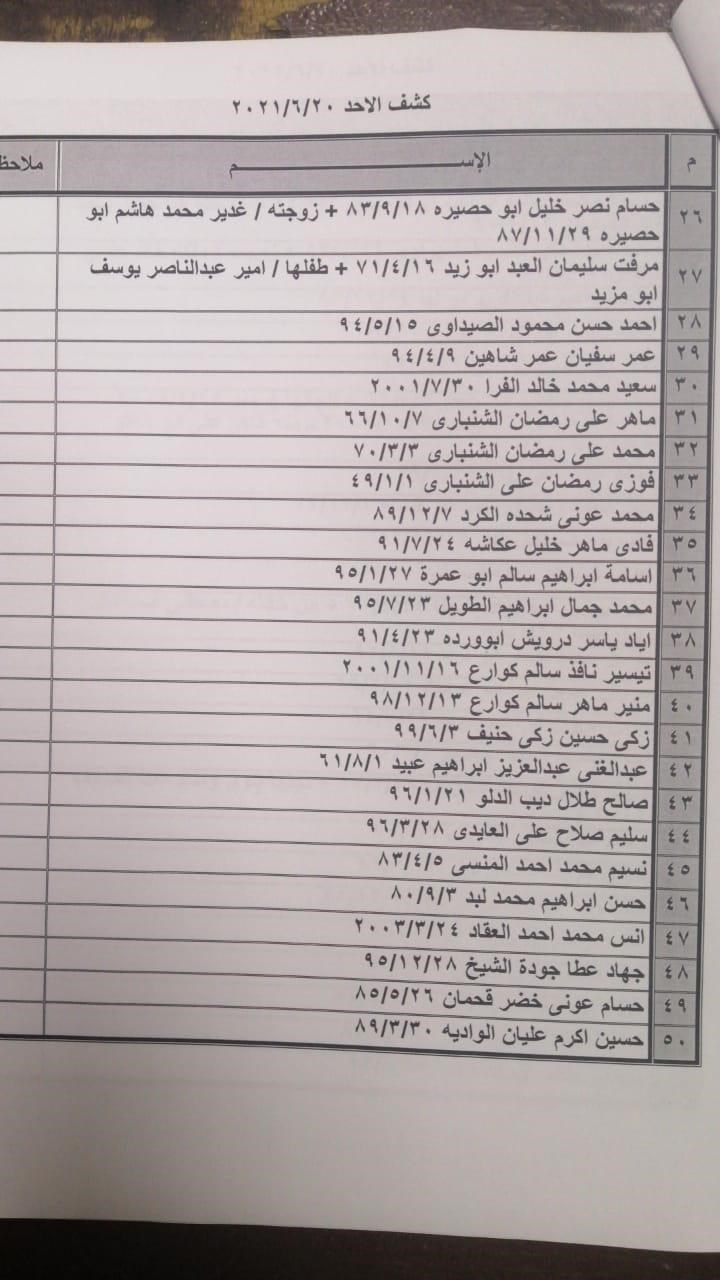 كشف الاحد ٢٠٢١/٦/٢٠
م الإســــــــم
٢٦ حسام نصر خليل ابو حصيره ٨٣/٩/١٨ + زوجته / غدير محمد هاشم ابو
حصيره ٨٧/١١/٢٩
٢٧ مرفت سليمان العبد ابو زيد ٧١/٤/١٦ + طفلها / امير عبدالناصر يوسف
ابو مزيد
٢٨ احمد حسن محمود الصيداوى ٩٤/٥/١٥
٢٩ عمر سفيان عمر شاهين ٩٤/٤/٩
٣٠ سعيد محمد خالد الفرا ٢٠٠١/٧/٣٠
٣١ ماهر على رمضان الشنبارى ٦٦/١٠/٧
٣٢ محمد على رمضان الشنبارى ٧٠/٣/٣
٣٣ فوزى رمضان على الشنبارى ٤٩/١/١
٣٤ محمد عونى شحده الكرد ٨٩/١٢/٧
٣٥ فادى ماهر خليل عكاشه ٩١/٧/٢٤
٣٦ اسامة ابراهيم سالم ابو عمرة ٩٥/١/٢٧
٣٧ محمد جمال ابراهيم الطويل ٩٥/٧/٢٣
٣٨ اياد ياسر درويش ابوورده ٩١/٤/٢٣
٣٩ تيسير نافذ سالم كوارع ٢٠٠١/١١/١٦
٤٠ منير ماهر سالم كوارع ٩٨/١٢/١٣
٤١ زكى حسين زكى حنيف ٩٩/٦/٣
٤٢ عبدالغنى عبدالعزيز ابراهيم عبيد ٦١/٨/١
٤٣ صالح طلال ديب الدلو ٩٦/١/٢١
٤٤ سليم صلاح على العايدى ٩٦/٣/٢٨
٤٥ نسيم محمد احمد المنسى ٨٣/٤/٥
٤٦ حسن ابراهيم محمد لبد ٨٠/٩/٣
٤٧ انس محمد احمد العقاد ٢٠٠٣/٣/٢٤
٤٨ جهاد عطا جودة الشيخ ٩٥/١٢/٢٨
٤٩ حسام عونى خضر قحمان ٨٥/٥/٢٦
٥٠ حسين اكرم عليان الواديه ٨٩/٣/٣٠